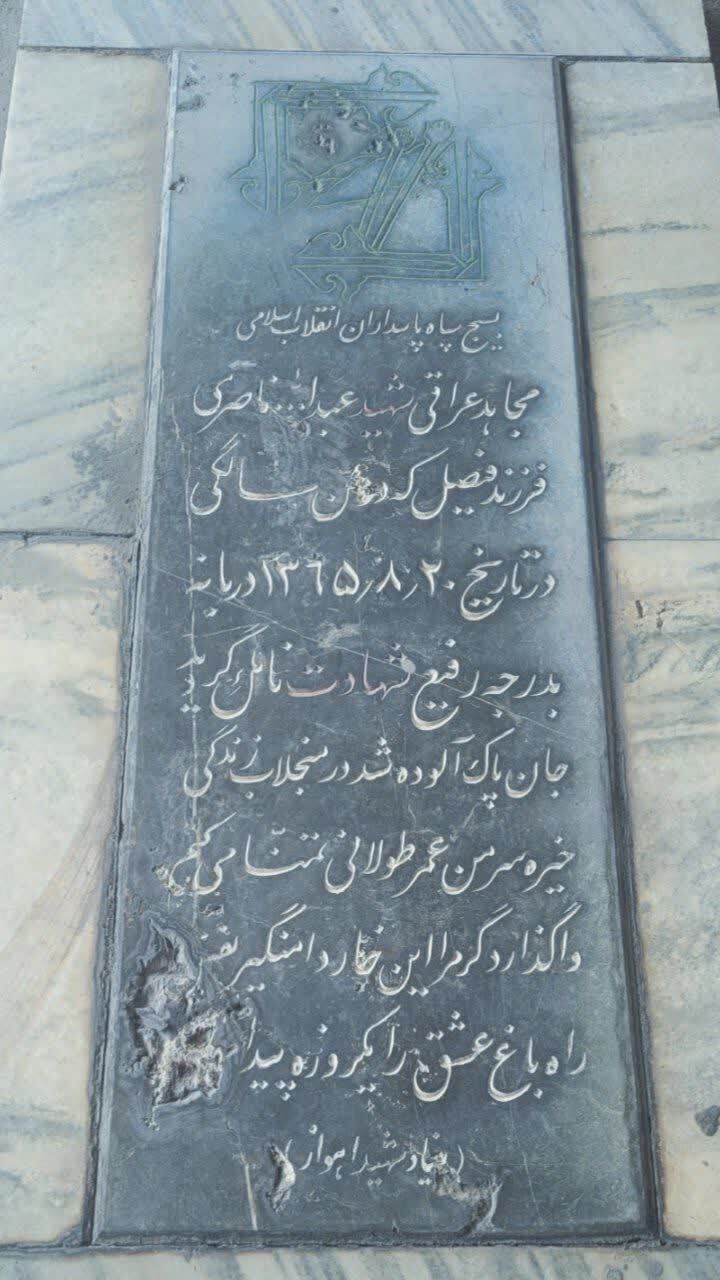 بسیج سپاه پاسداران انقلاب اسلامی
مجاهد عراقی شهید عبدا... ناصری
فرزند فیصل که در سن سالگی
در تاریخ ۱۳٦۵٫۸٫۲۰ در بانه
بدرجه رفیع شهادت نائل گردید
جان پاک آلوده شد در منجلاب زندگی
خیره سر من عمر طولانی تمنا می کنم
واگذارد گر مرا این خار دامنگیر نفس
راه باغ عشق را یکروزه پیدا
(بنیاد شهید اهواز)